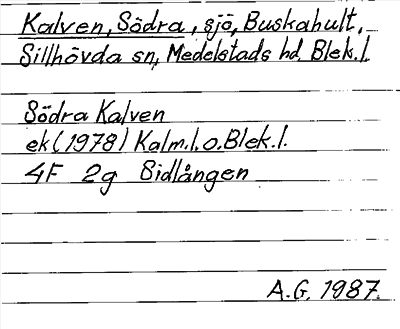 Kalven, Södra, sjö, Buskahult,
Sillhövda sn, Medelstads hd, Blek.l.
Södra Kalven
ek (1978) Kalm.l.o.Blek.l.
4F 2g Sidlången
A.G. 1987.